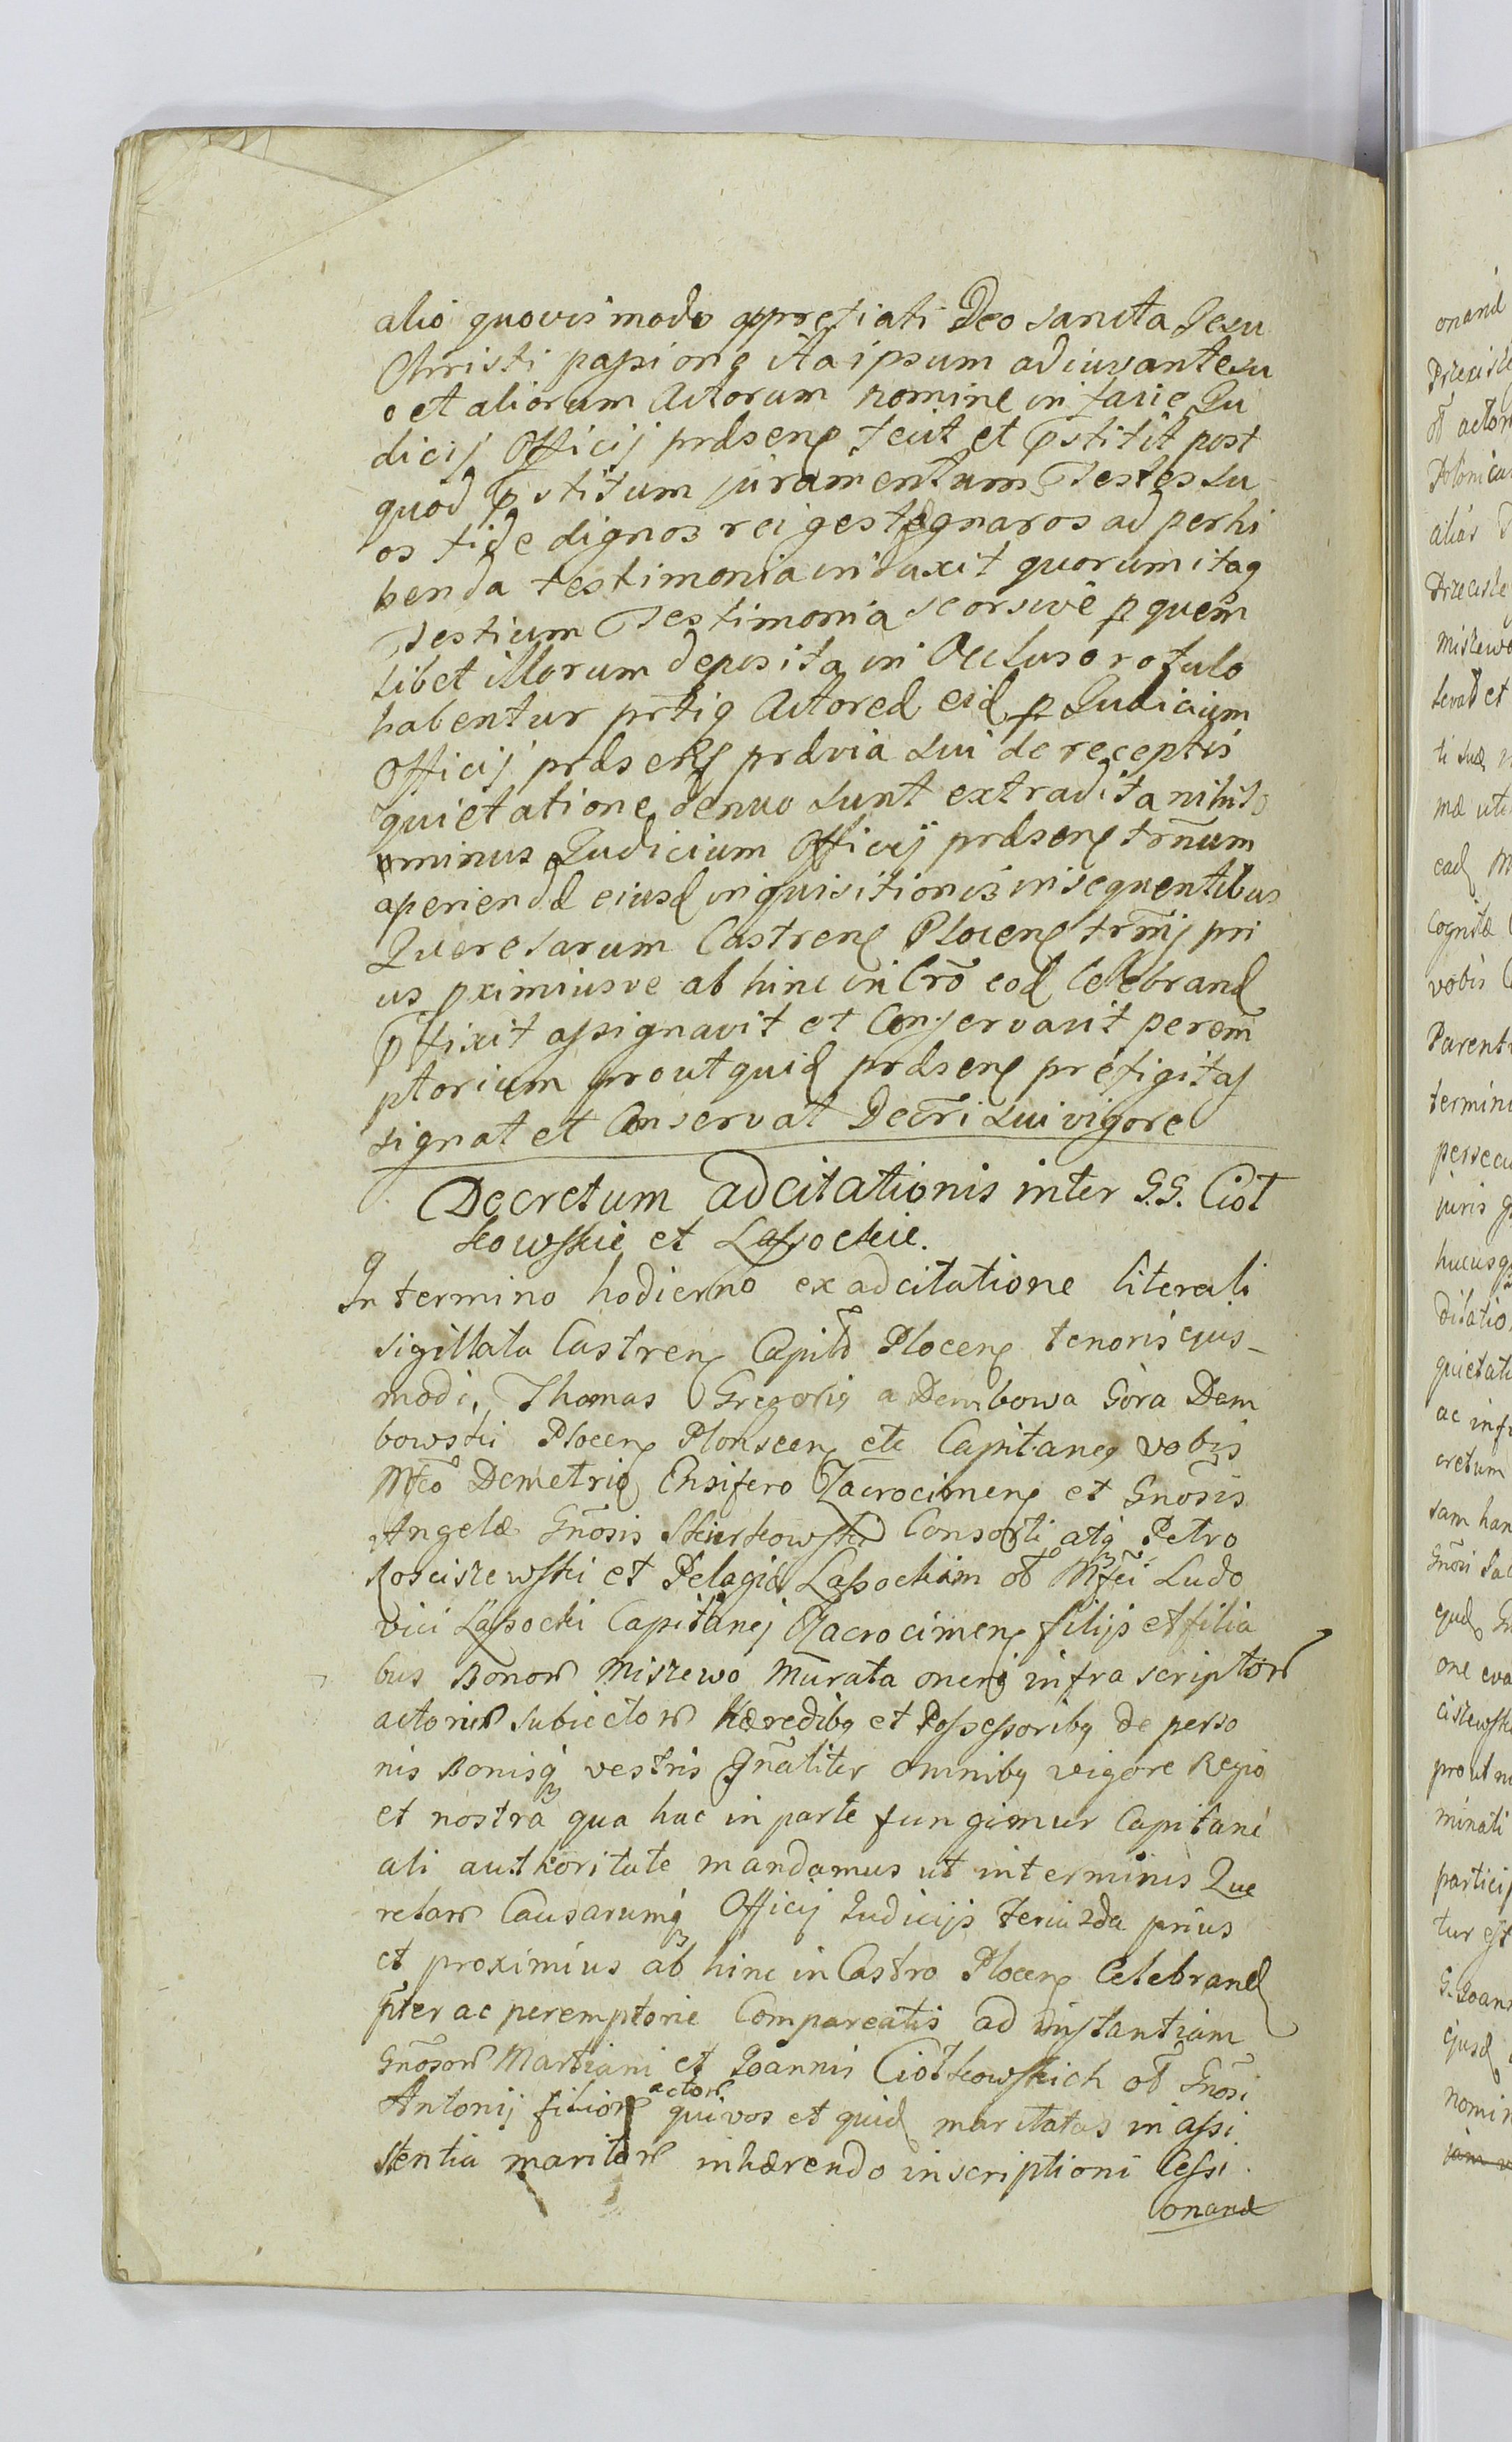 alio quovis modo appretiati Deo sancta Jesu
Christi passione ita ipsum adiuvante su
o et aliorum Actorum nomine in facie Ju
dicij Officij prdsenς fecit et p̄stitit post
quod p̄stitum juramentum Testes su
os fide dignos rei gestæ gnaros ad perhi
benda testimonia induxit quorum itaq
Testium Testimonia seorsive p quem
libet illorum deposita in Occluso rotulo
habentur prtiq Actoreæ eid p Judicium
Officij prdsenς prdvia sui de receptis
quietatione denuo sunt extradita nihilo
minus Judicium Officij prdsenς trm̄num
aperiendæ eiusd inquisitionis insequentibus
Querelarum Castrenς Plocenς trm̄ij pri
us pximiusve ab hinc in Cr̄o eod Celebrand
p̄fixit assignavit et Conservavit perem̄
ptorium prout quid prdsenς prefigit as
signat et Conservat Decr̄i sui vigore
Decretum adcitationis inter G.G. Ciot
kowskie et Lassockie.
In termino hodierno ex adcitatione literali
sigillata Castrenς Capitō Plocenς tenoris ejus-
modi, Thomas Gregoriq a Dembowa Góra Dem
bowski Plocenς Plonscenς etc Capitaneq vobis
Mfco Demetrio Ensifero Zacrocimenς et Gnōsis
Angelæ Gnōsis Skierkowski Consorti atq Petro
Rosciszewski et Pelagia Lassockim ol Mfci Ludo
vici Lassocki Capitanej Zacrocimenς filijs et filia
bus Bonor Miszewo Murata oneri infra scriptor
actorum subiector Hæredibq et Possessoribq de perso
nis Bonisq vestris gn̄aliter omnibq vigore Regio
et nostra qua hac in parte fungimur Capitane
ali authoritate mandamus ut in terminis Que
relar Causarumq Officij Judicijs feria 2da prius
et proximius ab hinc in Castro Plocenς Celebrand
p̄ter ac peremptorie Compareatis ad instantiam
Gnōsor Martiani et Joannis Ciołkowskich ol Gnōsi
Antonij filior actor qui vos et quid maritatas in assi
stentia maritor inhærendo inscriptioni Cessi
onand